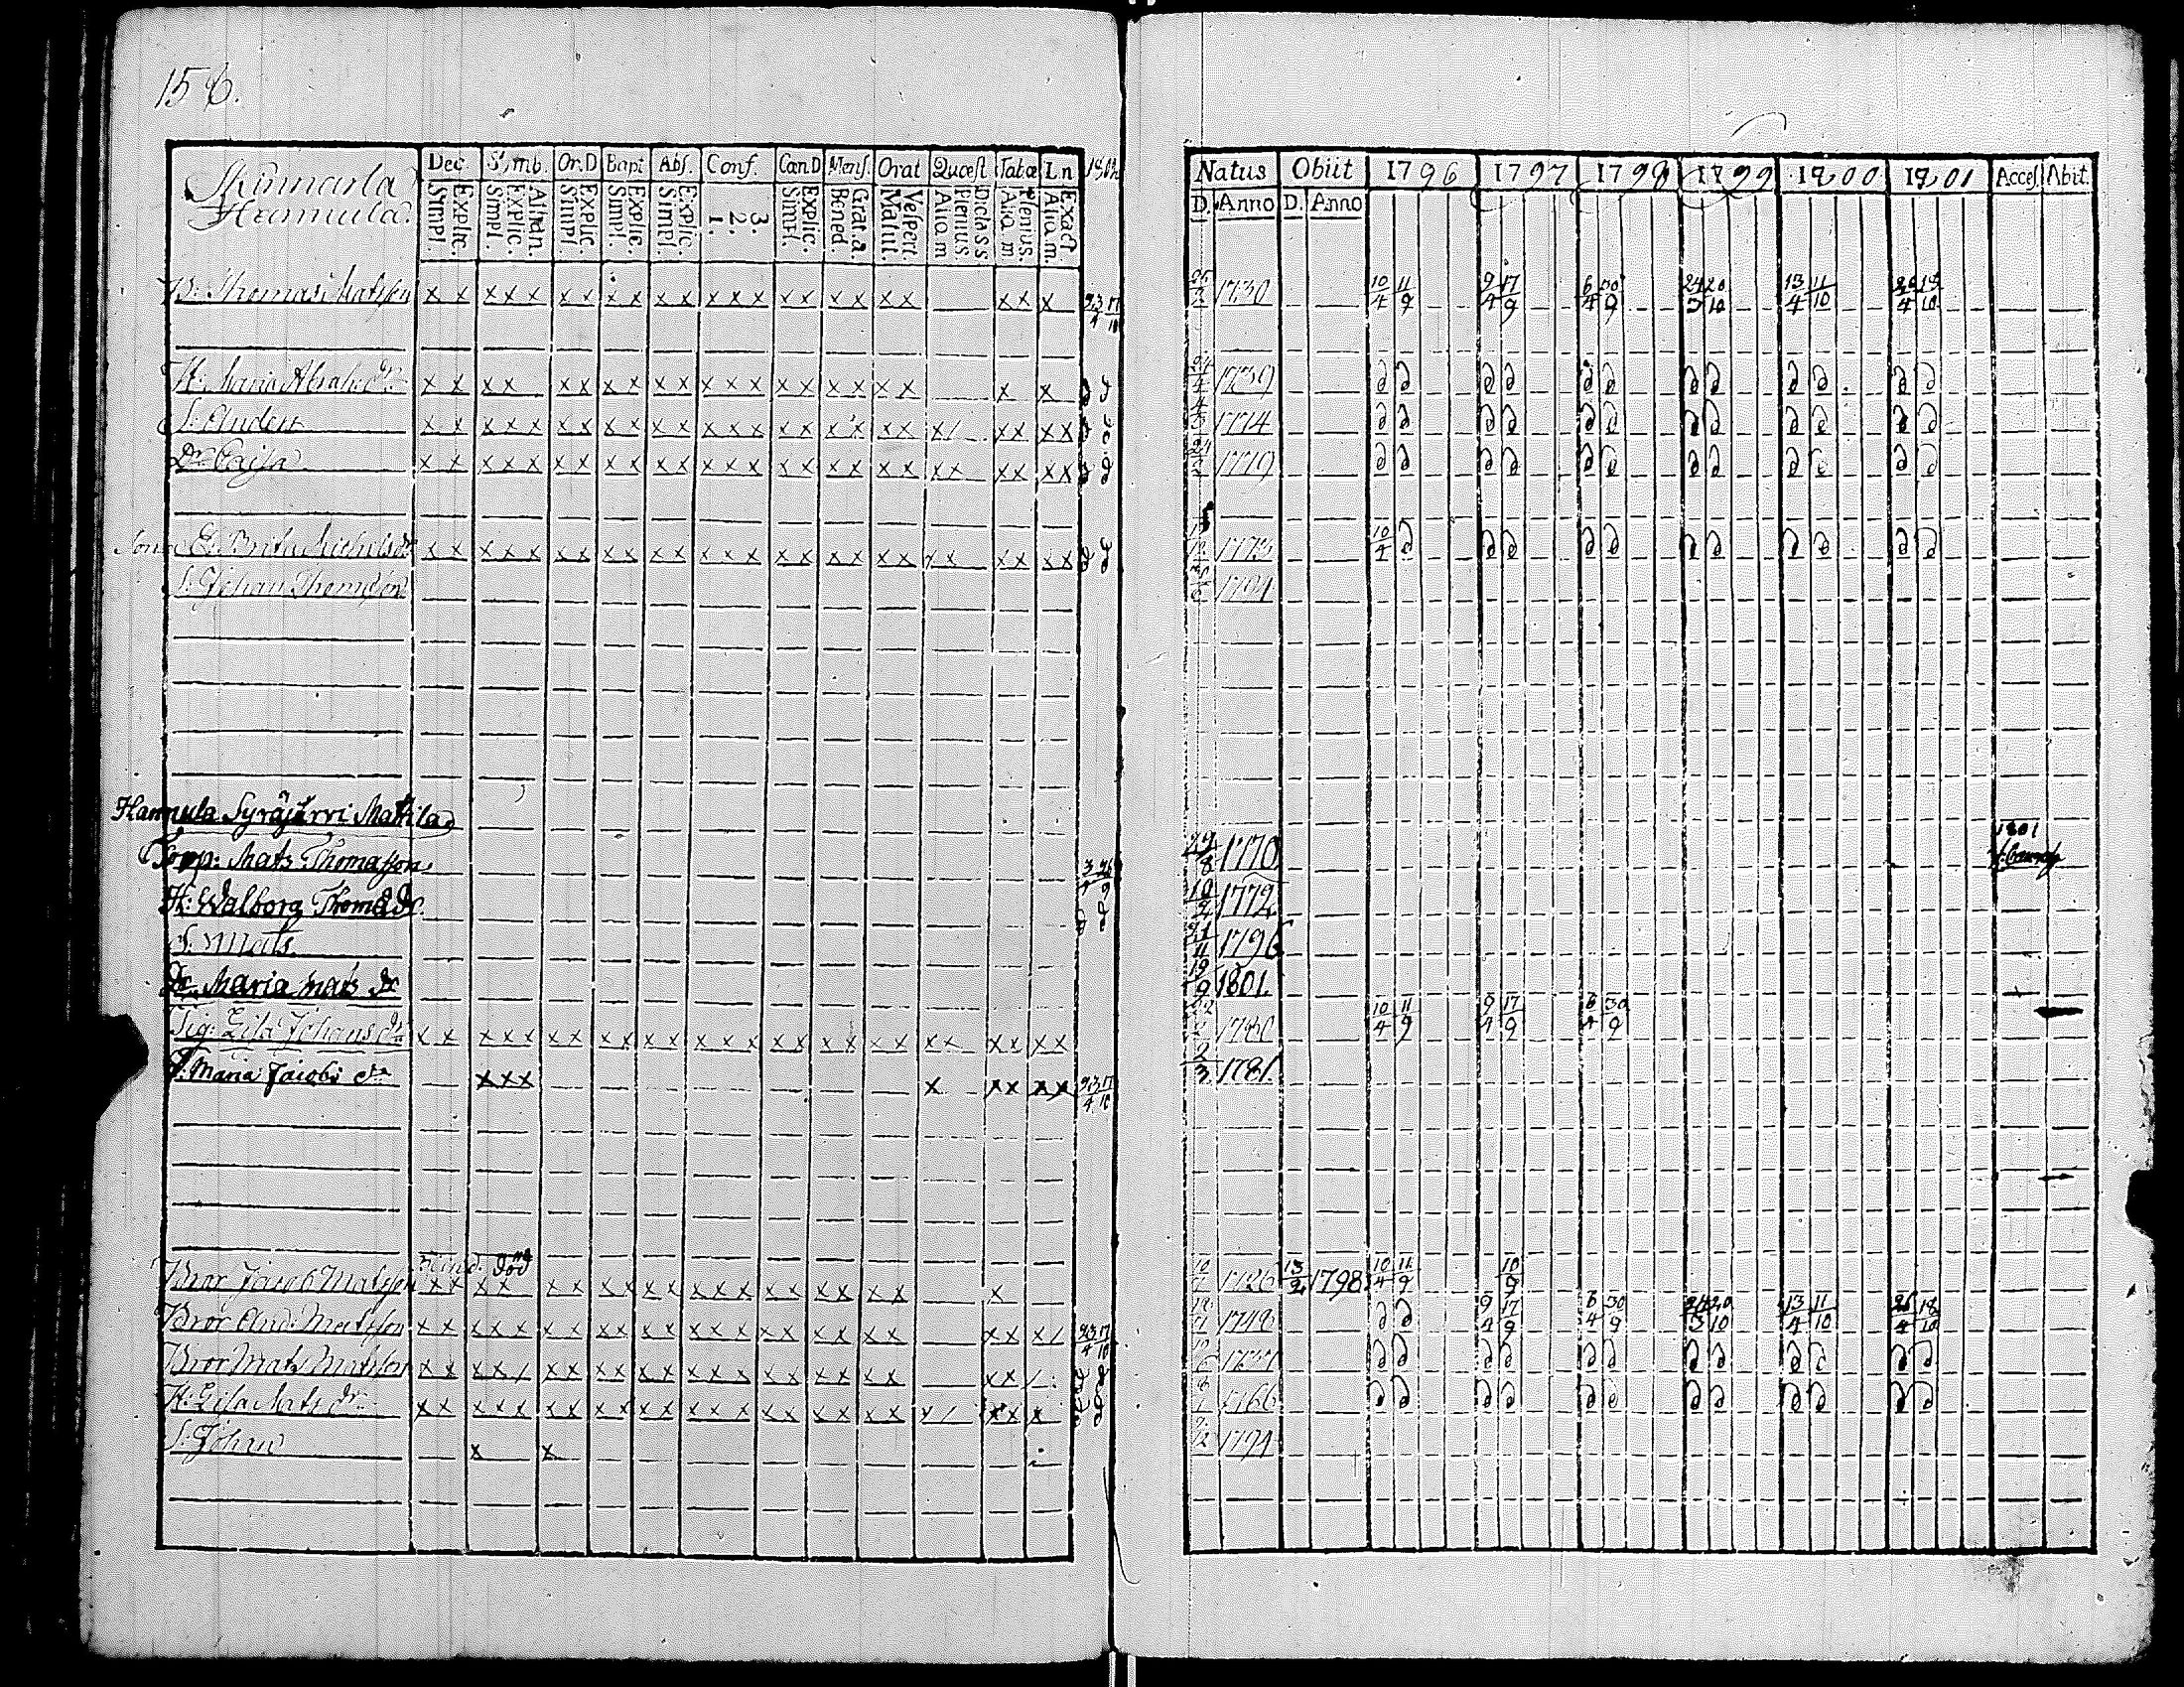 156.
Skinnarla
Hannula.
Dec. Symb. Or.D Bapt Abs. Conf. Can.D Mens. Orat Quæst Tabæ In 1802
Explic. Simpl. Athan. Explic. Simpl. Explic. Simpl. Explic. Simpl. Explic. Simpl. 3. 2. 1. Explic. Simpl. Grat.a. Bened. Vespert. Matut. Dictass. Plenius. Aliqm Plenius. Aliqm Exact. Aliqm.
B. Thomas Matsson x x x x x x x x x x x x x x x x x x x x x x x 23/4 17/10
H: Maria Abrah. dr x x x x x x x x x x x x x x x x x x x x x d d
S. Anders x x x x x x x x x x x x x x x x x x x x / x x x x d d
Dr Cajsa x x x x x x x x x x x x x x x x x x x x x x x x x d d
Sonens E. Brita Michelsdr x x x x x x x x x x x x x x x x x x x x x x x x x d d
S. Johan Thomasson
Hannula Syräjärvi Mattila
Torp: Mats Thomasson
H: Walborg Thomæ dr.
S. Mats
Dr. Maria Mats dr
Pig: Lisa Johans dr x x x x x x x x x x x x x x x x x x x x x x x x x
P. Maria Jacobs dtr x x x x x x x x 23/4 17/10
död
Bror Jacob Matsson x x x x x x x x x x x x x x x x x x x x
Bror And: Matsson x x x x x x x x x x x x x x x x x x x x x x x / 23/4 17/10
Bror Mats Matsson x x x x / x x x x x x x x x x x x x x x x x x / d d
H: Lisa Mats dr x x x x x x x x x x x x x x x x x x x x / x x x d d
S. Johan x x
Natus Obiit 1796 1797 1798 1799 1800 1801 Acces. Abit.
D. Anno D. Anno
1730 10/4 11/9 9/4 17/9 6/4 30/9 24/3 20/10 13/4 11/10 26/4 18/10
1739 d d d d d d d d d d d d
1774 d d d d d d d d d d d d
1779 d d d d d d d d d d d d
10/4 d d d d d d d d d d d
1794
1801
1770
1772
21/11 1796
19/9 1801.
1780 10/4 11/9 9/4 17/9 6/4 30/9
2/3 1781.
1726 13/2 1798 10/4 11/9 10/9
1748 d d 9/4 17/9 6/4 30/9 24/3 20/10 13/4 11/10 26/4 18/10
d d d d d d d d d d d d
1766 d d d d d d d d d d d d
1794